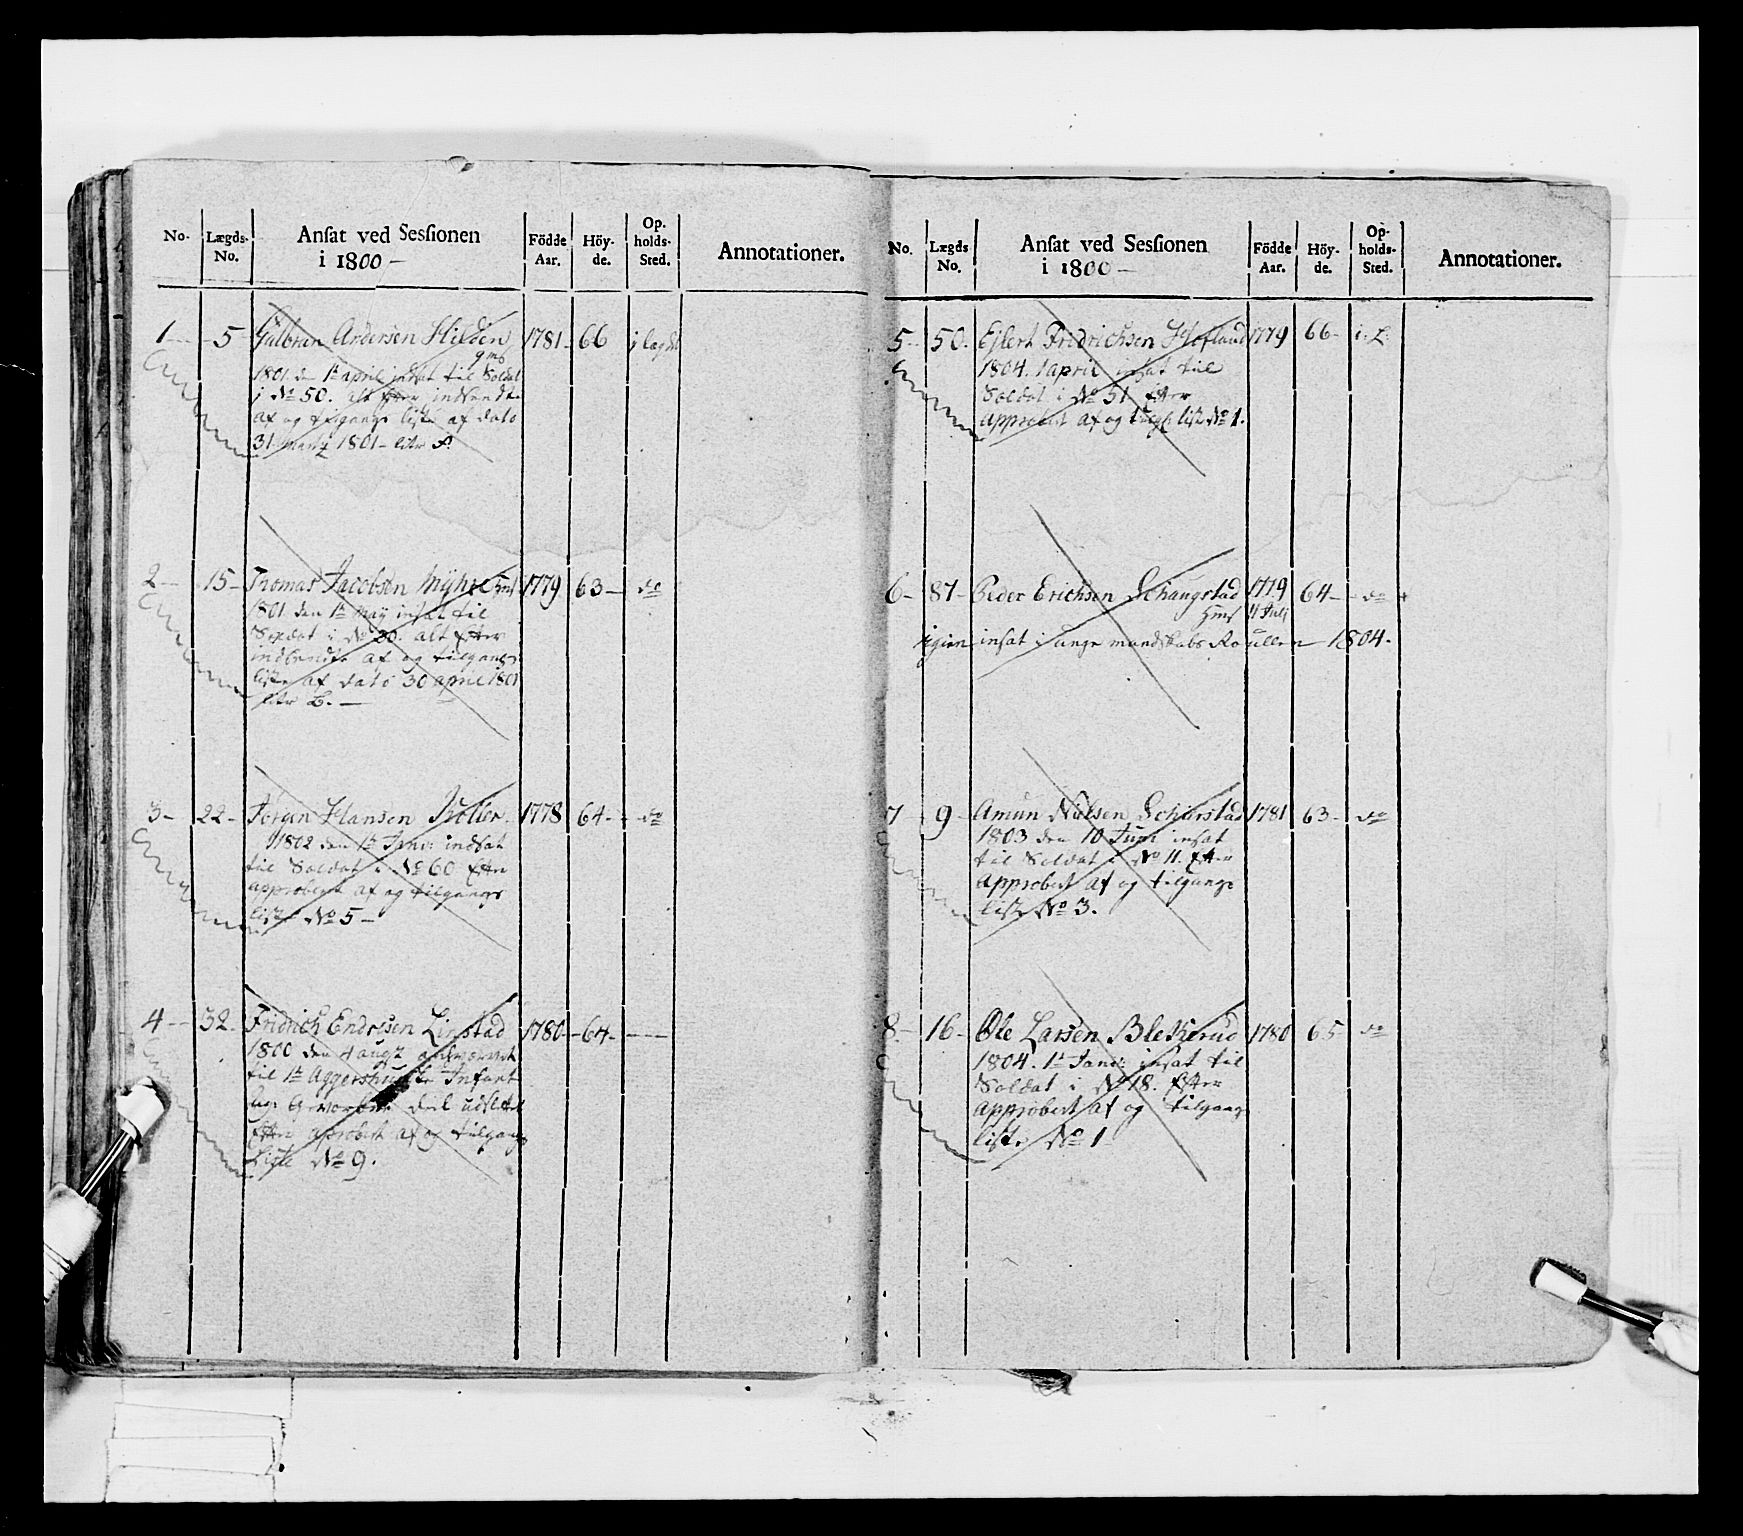 No. Lægds-No. Ansat ved Sessionen i 1800 – Födde Aar. Höy-de. Op-holds-Sted. Annotationer.
1 – 5 – Gulbran Andersen Hilden 1781 – 66 i lægdet
1801 den 1te april indsat til Soldat
i No 50. alt Efter indsendte
af og tilgangs liste af dato
31 Martz 1801 – litr A.
2 – 15 – Thomas Jacobsen Myhre 1779 63 – do
1801 den 1te May insat til
Soldat i No 20. alt Efter
indsendte af og tilgangs
liste af dato 30 april 1801
litr B. –
3 – 22 – Jörgen Hansen 1778 64 – do
1802 den 1te Janv: indsat
til Soldat i No 60 Efter
approbert af og tilgangs
liste No 5 –
4 – 32 – Fridrich Endresen Linstad 1780 – 64 – –
1800 den 4 augt
til 1te Aggershusiske Infant
Efter aprobert af og tilgangs
Liste No 9.
No. Lægds No. Ansat ved Sessionen i 1800 – Födde Aar. Höy-de. Op-holds-Sted. Annotationer.
5 – 50. Ejlert Fridrichsen Hofland 1779 66 – i L:
1804. 1 april insat til
Soldat i No 51 Efter
approbert af og liste No 1.
6 – 87 – Peder Erichsen Schaugstad 1779 64 – do
11 Juli
igien insat i unge mandskabs Roullen – 1804.
7 – 9 – Amun Nielsen Schiørstad 1781 63 – do
1803 den 10 Juni insat
til Soldat i No 11. Efter
Approbert af og tilgangs
liste No 3.
8. – 16 – Ole Larsen Blekerud 1780 65 do
1804. 1te Janv: insat til
Soldat i No 18. Efter
approbert af og tilgangs
liste No 1